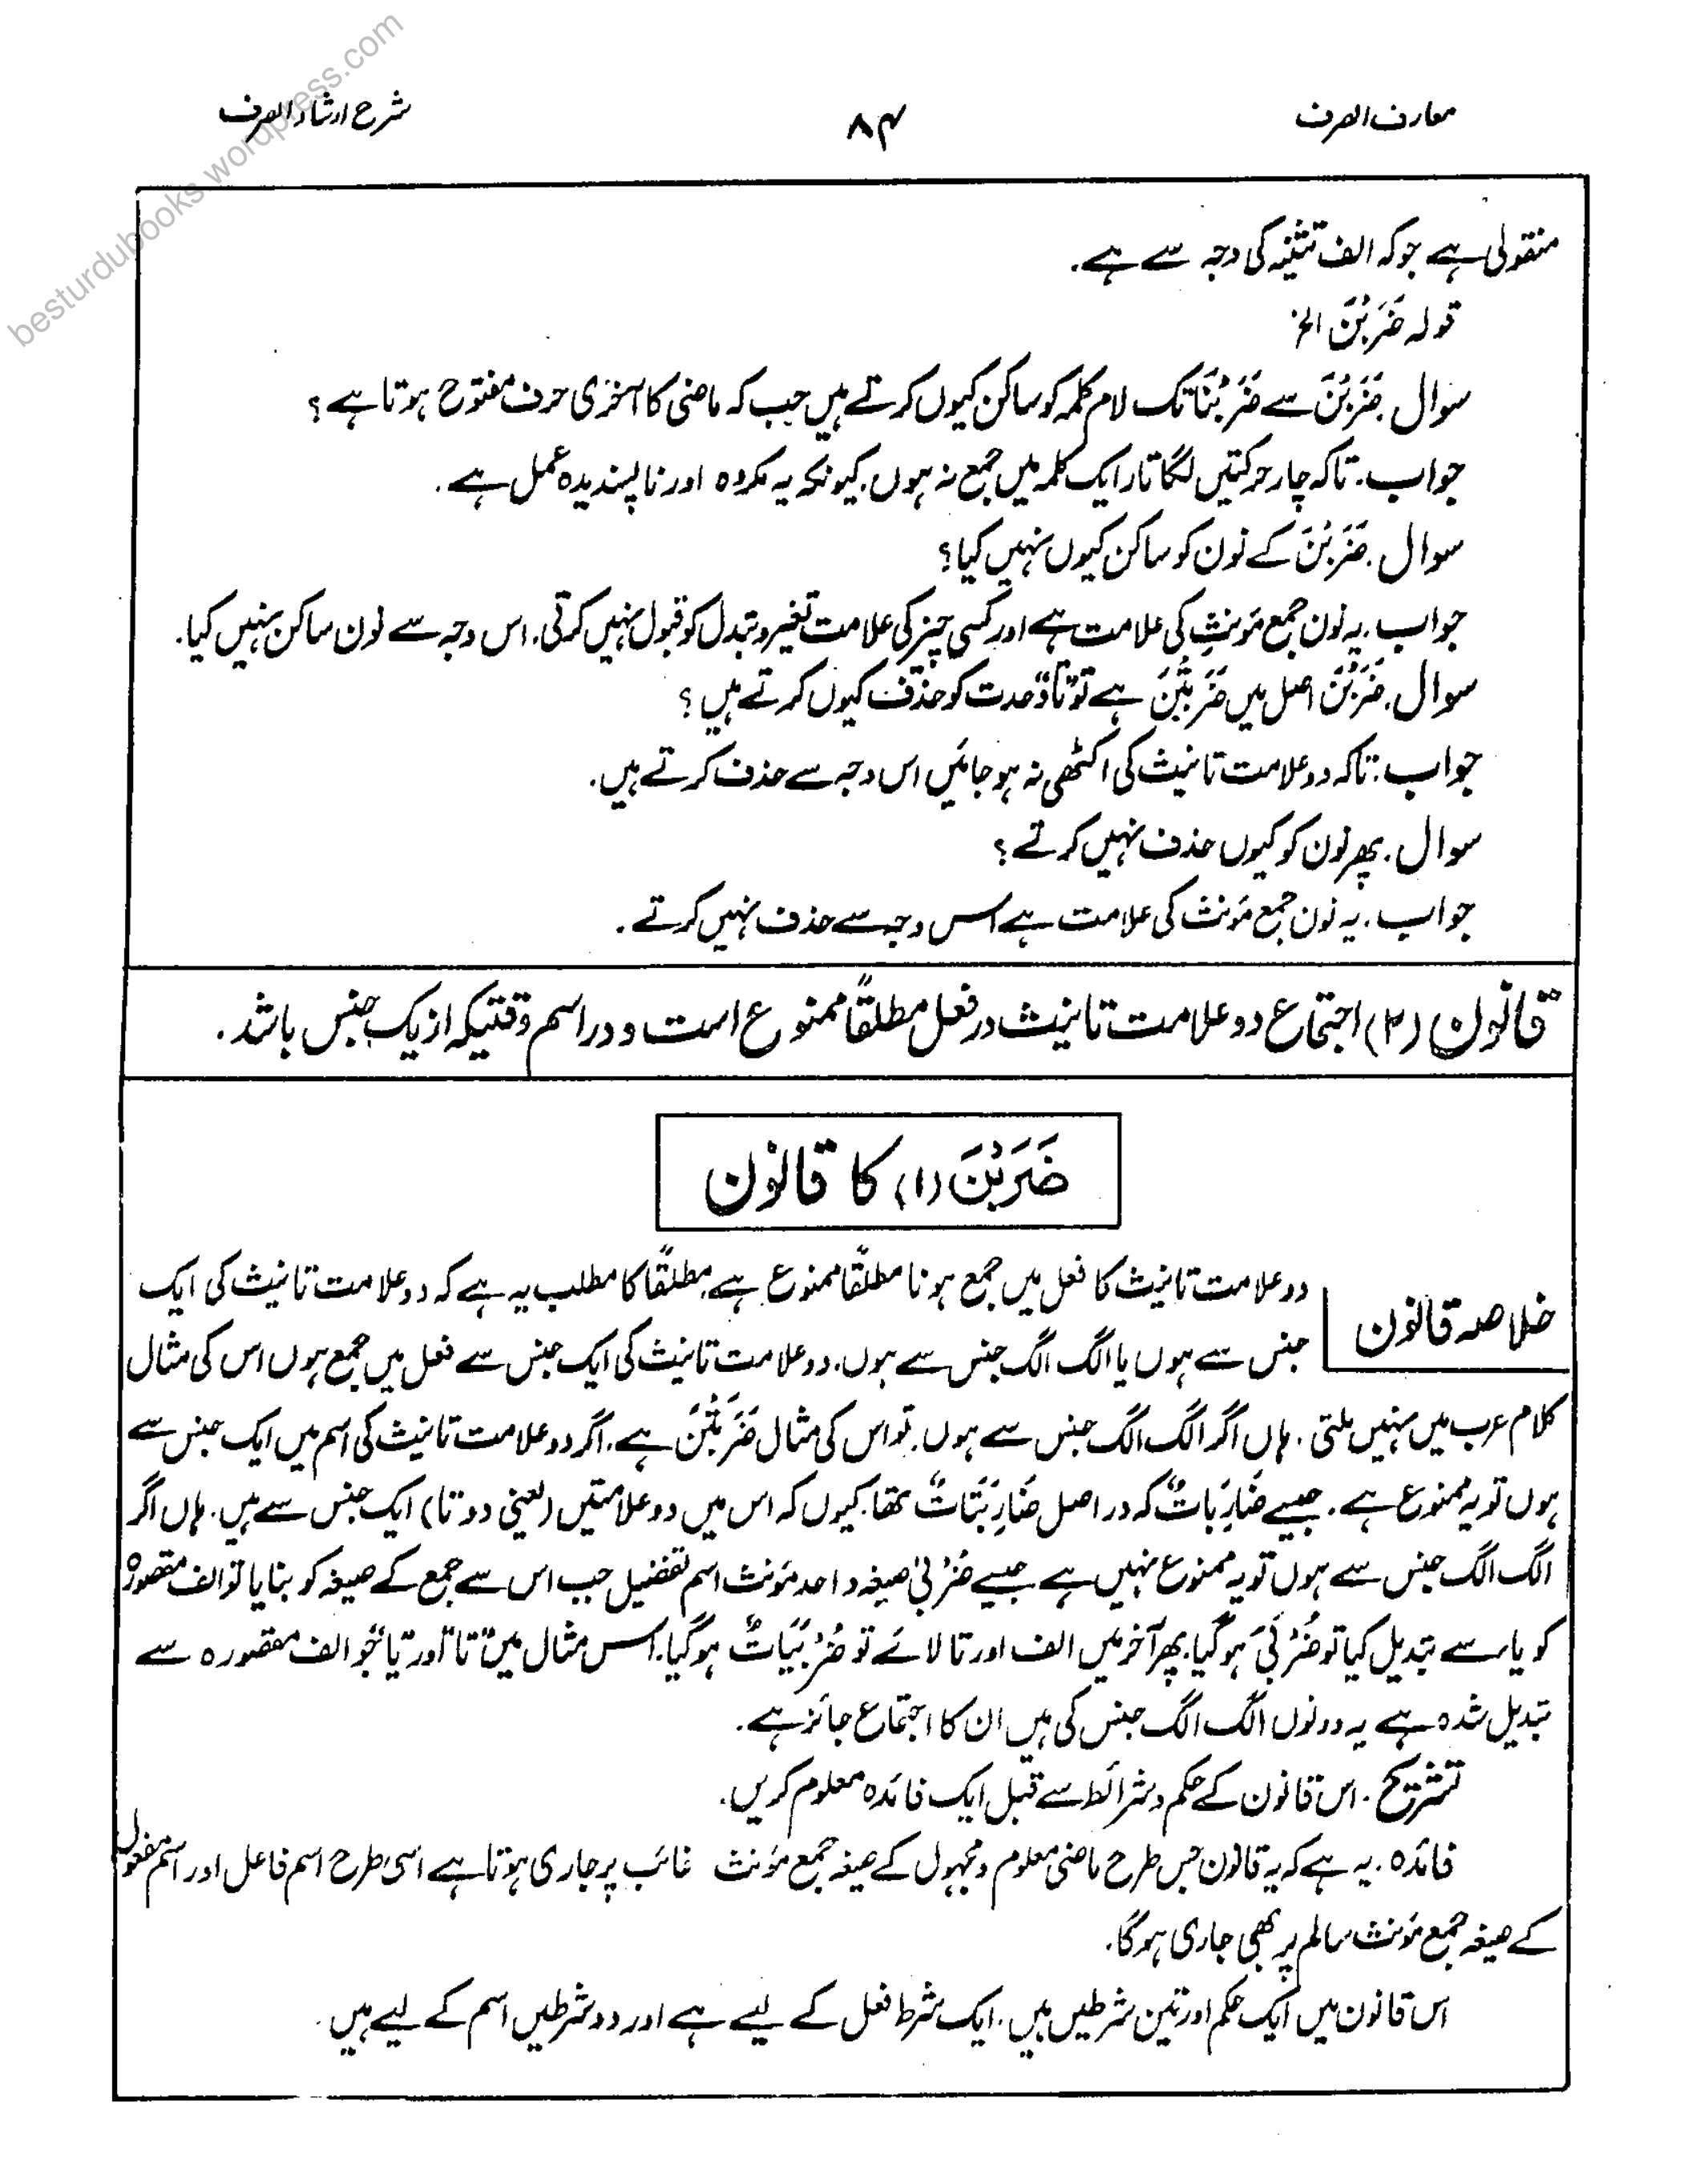 معارف الصرف
۸۴
شرح ارشاد الصرف
besturdubooks.wordpress.com
منقولی ہے جو کہ الف تثنیہ کی وجہ سے ہے۔
قولہ ضَرَبْنَ الخ
سوال۔ ضَرَبْنَ سے ضَرَبْنَا تک لام کلمہ کو ساکن کیوں کرتے ہیں جب کہ ماضی کا آخری حرف مفتوح ہوتا ہے؟
جواب۔ تاکہ چار حرکتیں لگاتار ایک کلمہ میں جمع نہ ہوں۔ کیونکہ یہ مکروہ اور ناپسندیدہ عمل ہے۔
سوال۔ ضَرَبْنَ کے نون کو ساکن کیوں نہیں کیا؟
جواب۔ یہ نون جمع مؤنث کی علامت ہے اور کسی چیز کی علامت تغیر و تبدل کو قبول نہیں کرتی۔ اس وجہ سے نون ساکن نہیں کیا۔
سوال۔ ضَرَبْنَ اصل میں ضَرَبَتْنَ ہے تو "تا" وحدت کو حذف کیوں کرتے ہیں؟
جواب: تاکہ دو علامت تانیث کی اکٹھی نہ ہو جائیں اس وجہ سے حذف کرتے ہیں۔
سوال۔ پھر نون کو کیوں حذف نہیں کرتے؟
جواب۔ یہ نون جمع مؤنث کی علامت ہے اس وجہ سے حذف نہیں کرتے۔
قانون (۲) اجتماع دو علامت تانیث در فعل مطلقاً ممنوع است و در اسم وقتیکہ از یک جنس باشد۔
ضَرَبْنَ (۱) کا قانون
خلاصہ قانون
دو علامت تانیث کا فعل میں جمع ہونا مطلقاً ممنوع ہے۔ مطلقاً کا مطلب یہ ہے کہ دو علامت تانیث کی ایک
جنس سے ہوں یا الگ الگ جنس سے ہوں۔ دو علامت تانیث کی ایک جنس سے فعل میں جمع ہوں اس کی مثال
کلام عرب میں نہیں ملتی۔ ہاں اگر الگ الگ جنس سے ہوں۔ تو اس کی مثال ضَرَبَتْنَ ہے۔ اگر دو علامت تانیث کی اسم میں ایک جنس سے
ہوں تو یہ ممنوع ہے۔ جیسے ضَارِبَاتٌ کہ در اصل ضَارِبَتَاتٌ تھا۔ کیوں کہ اس میں دو علامتیں (یعنی دو تا) ایک جنس سے ہیں۔ ہاں اگر
الگ الگ جنس سے ہوں تو یہ ممنوع نہیں ہے جیسے ضُرْبٰی صیغہ واحد مؤنث اسم تفضیل جب اس سے جمع کے صیغہ کو بنایا تو الف مقصورہ
کو یاء سے تبدیل کیا تو ضُرْبَیَ ہو گیا۔ پھر آخر میں الف اور تا لائے تو ضُرْبَیَاتٌ ہو گیا۔ اس مثال میں "تا" اور "یا" جو الف مقصورہ سے
تبدیل شدہ ہے یہ دونوں الگ الگ جنس کی ہیں ان کا اجتماع جائز ہے۔
تشریح۔ اس قانون کے حکم و شرائط سے قبل ایک فائدہ معلوم کریں۔
فائدہ۔ یہ ہے کہ یہ قانون جس طرح ماضی معلوم و مجہول کے صیغہ جمع مؤنث غائب پر جاری ہوتا ہے اسی طرح اسم فاعل اور اسم مفعول
کے صیغہ جمع مؤنث سالم پر بھی جاری ہوگا۔
اس قانون میں ایک حکم اور تین شرطیں ہیں۔ ایک شرط فعل کے لیے ہے اور دو شرطیں اسم کے لیے ہیں۔